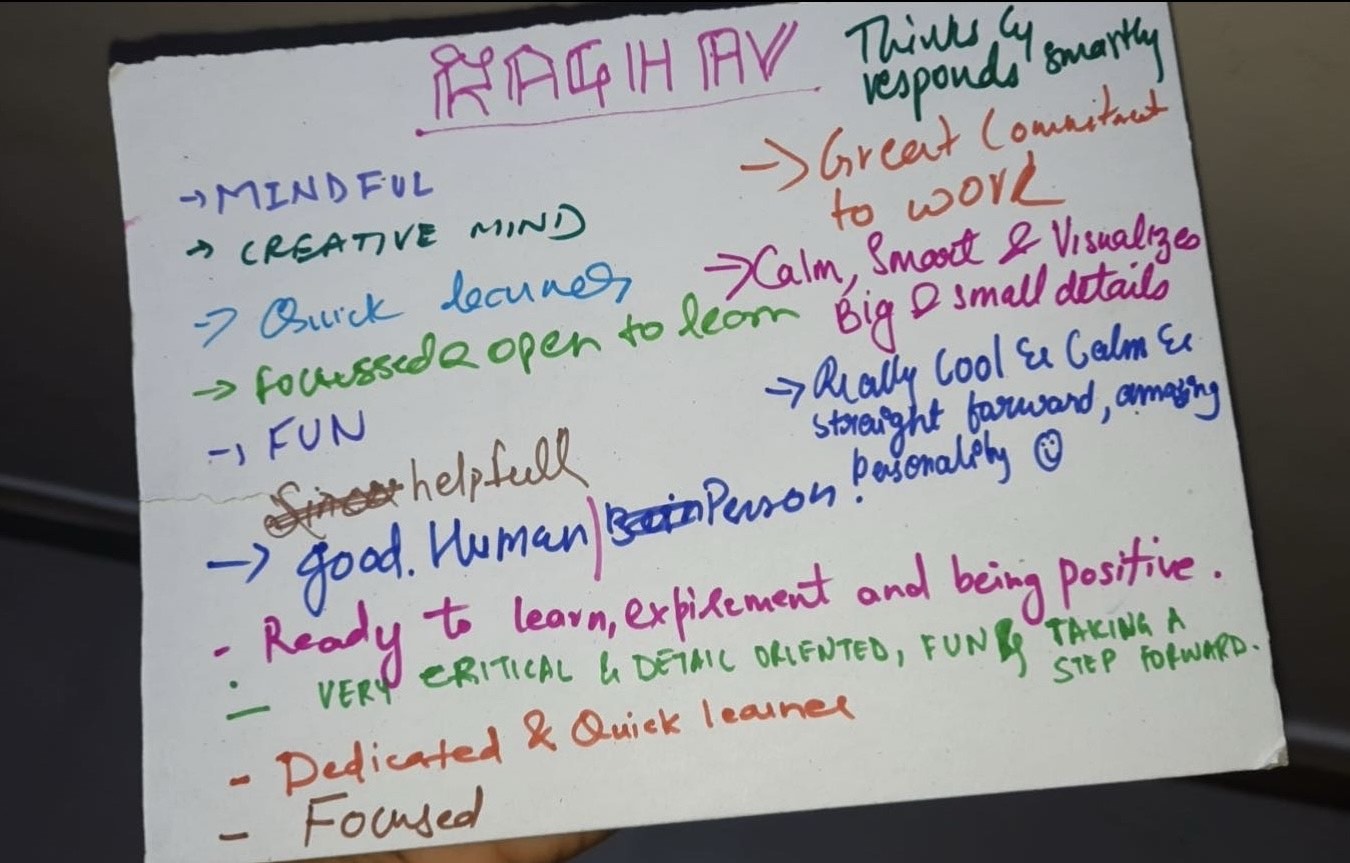 RAGHAV
Thinks &
responds smartly
→ MINDFUL
→ CREATIVE MIND
→ Quick learner
→ focussed & open to learn
→ FUN
helpfull
→ good. Human / Person.
→ Great Commitment
to work
→ Calm, Smart & Visualizes
Big & small details
→ Really Cool & Calm &
straight forward, amazing
personality ☺
- Ready to learn, expirement and being positive.
- VERY CRITICAL & DETAIL ORIENTED, FUN & TAKING A
STEP FORWARD.
- Dedicated & Quick learner
- Focused